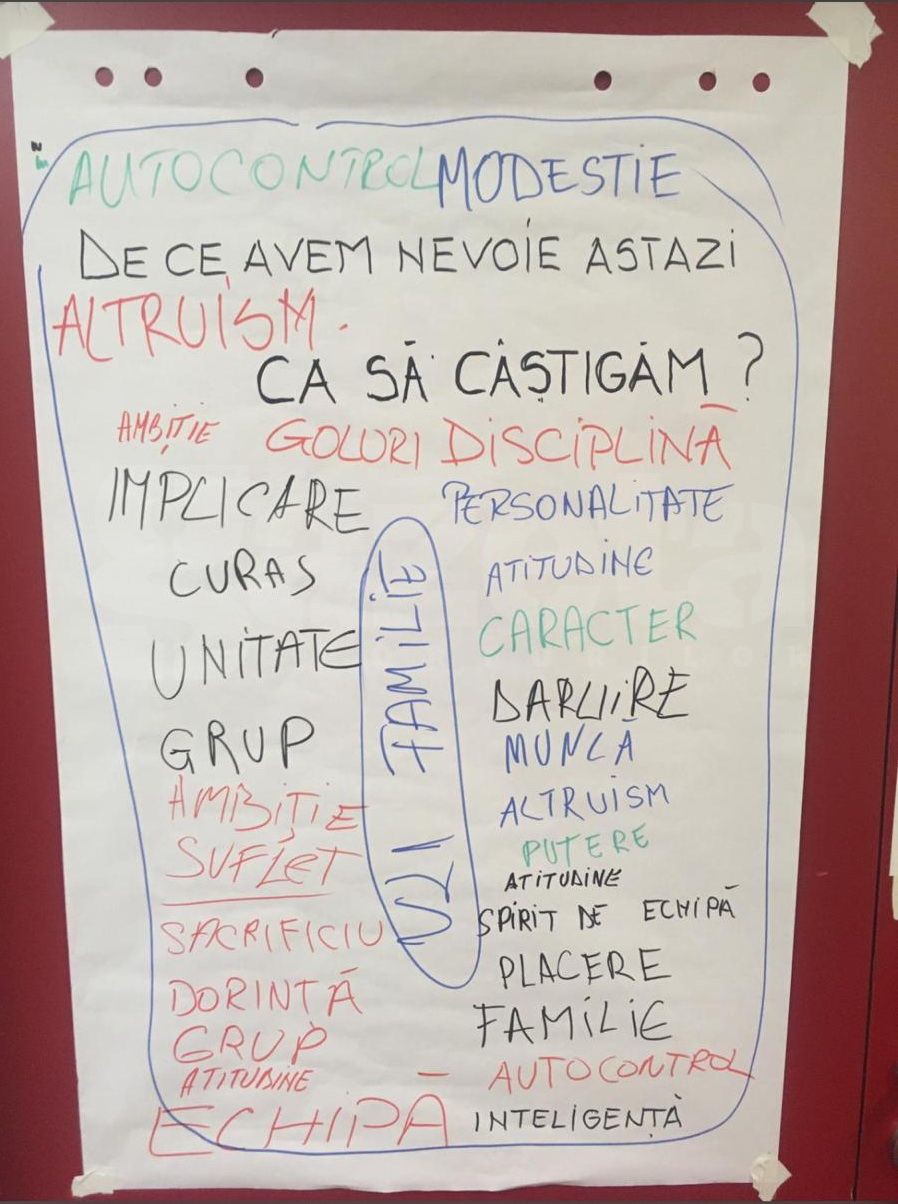 AUTOCONTROL MODESTIE
DE CE AVEM NEVOIE ASTAZI
ALTRUISM.
CA SĂ CÂȘTIGĂM ?
AMBIȚIE GOLURI DISCIPLINĂ
IMPLICARE
CURAS
UNITATE
GRUP
AMBIȚIE
SUFLET
SACRIFICIU
DORINȚĂ
GRUP
ATITUDINE
ECHIPĂ
UZI FAMILIE
PERSONALITATE
ATITUDINE
CARACTER
DARUIRE
MUNCA
ALTRUISM
PUTERE
ATITUDINE
SPIRIT DE ECHIPĂ
PLACERE
FAMILIE
- AUTOCONTROL
INTELIGENȚĂ